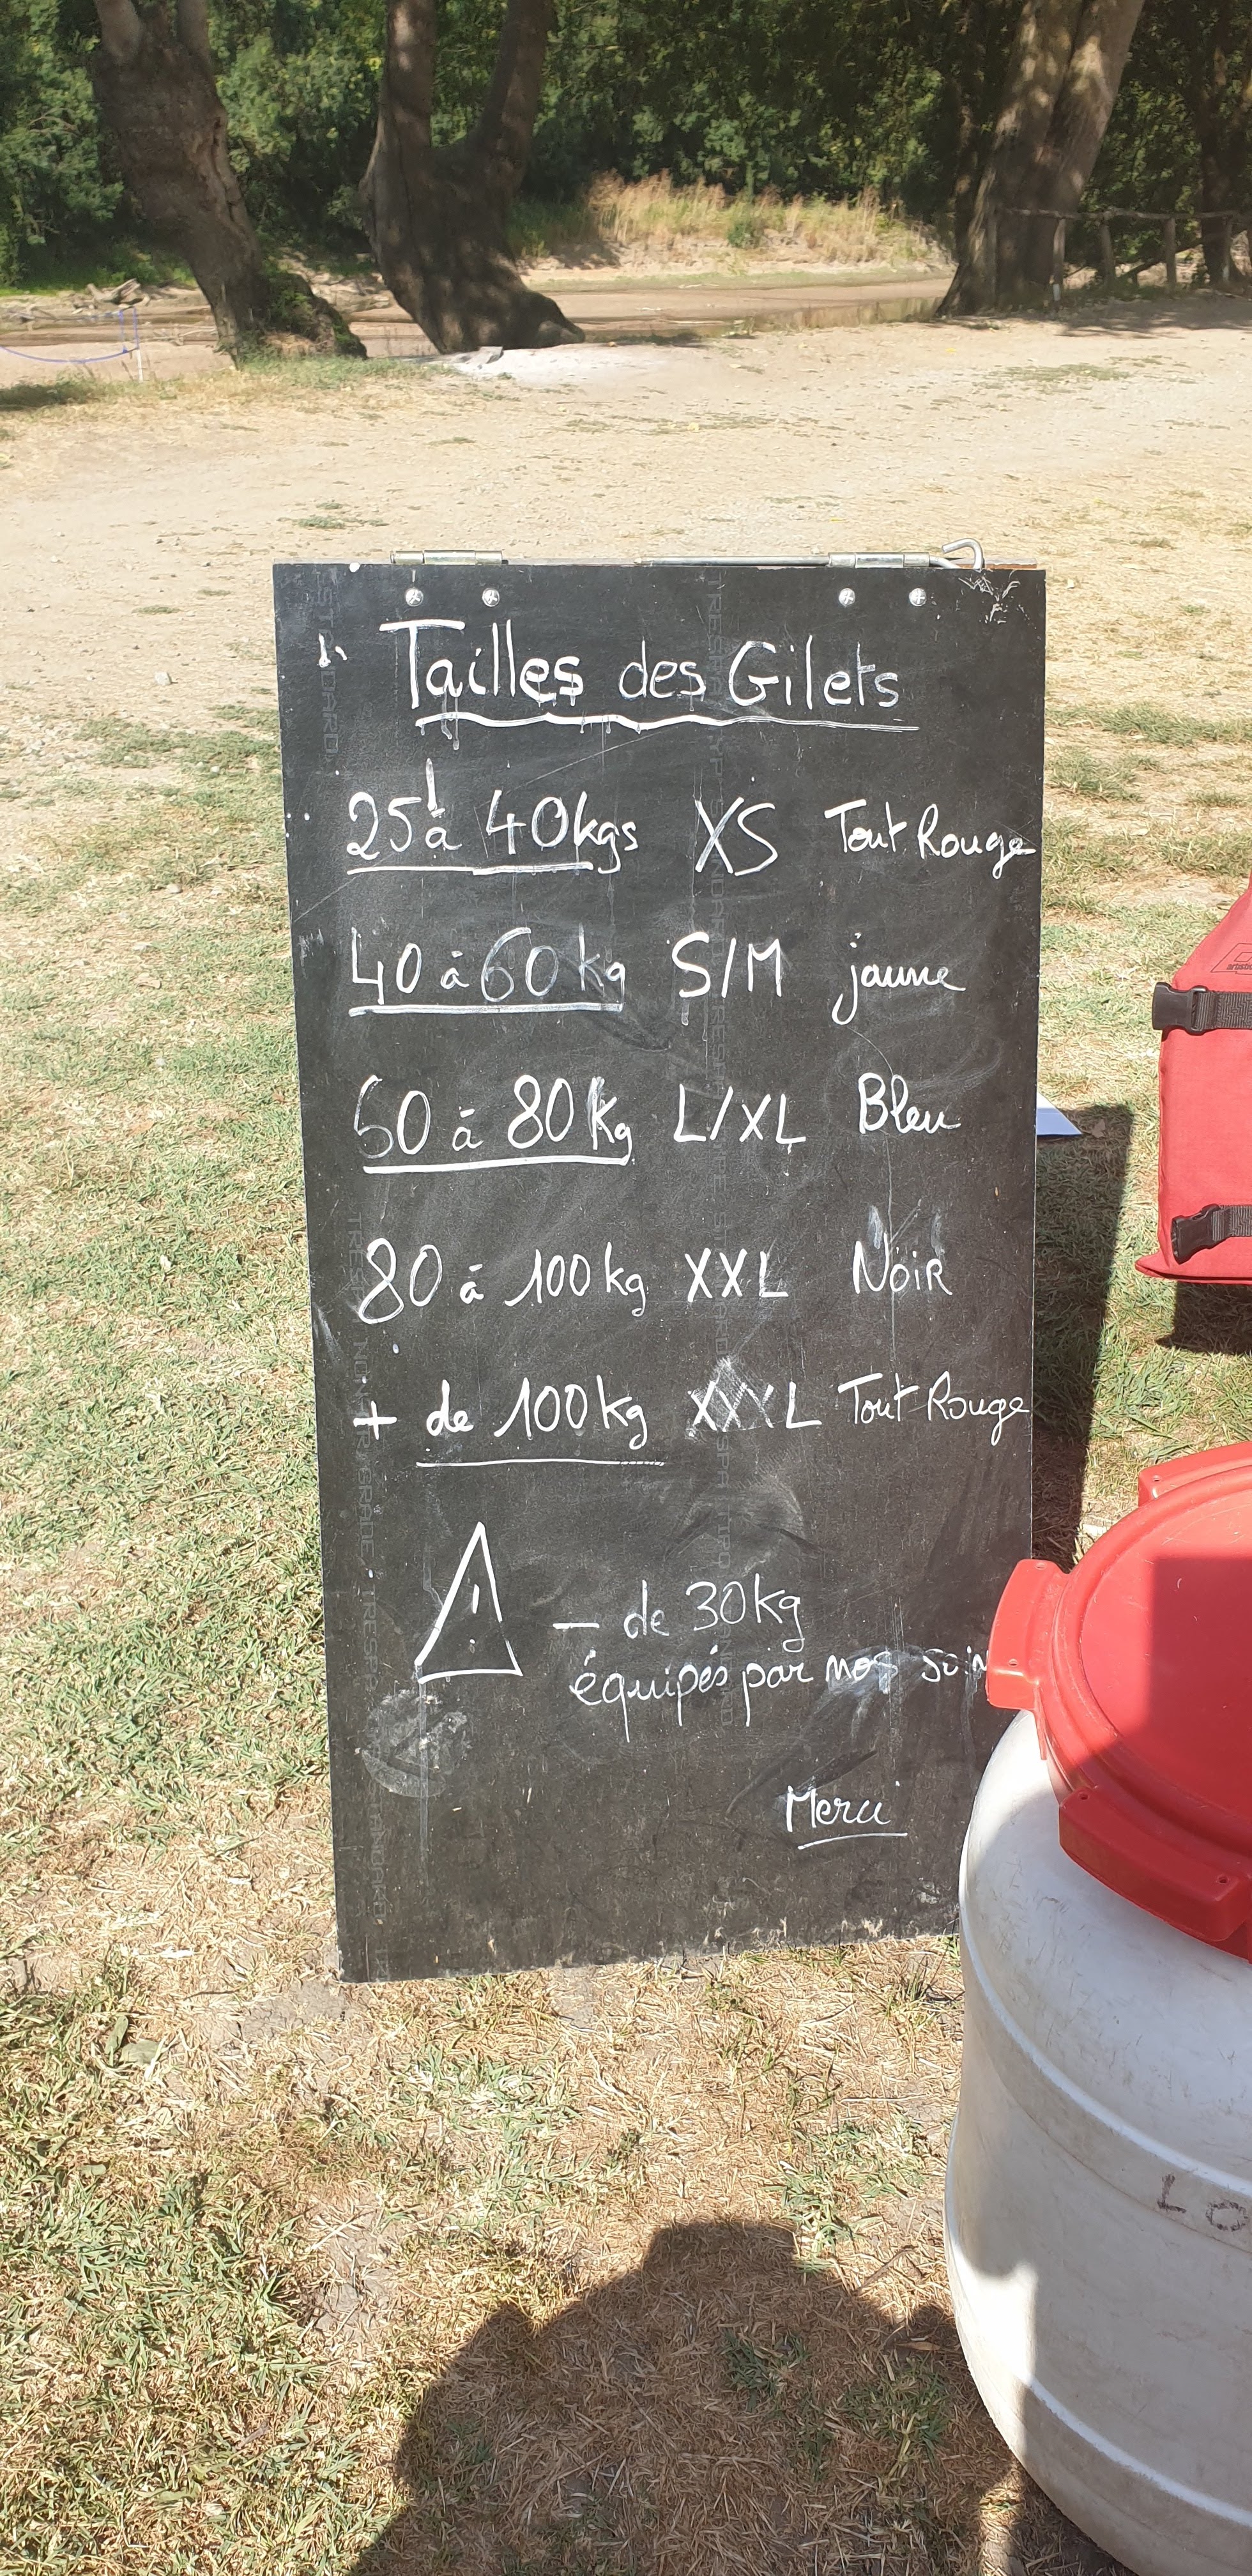 Tailles des Gilets
25 à 40kgs XS Tout Rouge
40 à 60 kg S/M jaune
60 à 80 kg L/XL Bleu
80 à 100 kg XXL Noir
+ de 100 kg XXXL Tout Rouge
! - de 30 kg
équipés par nos soin
Merci
LO